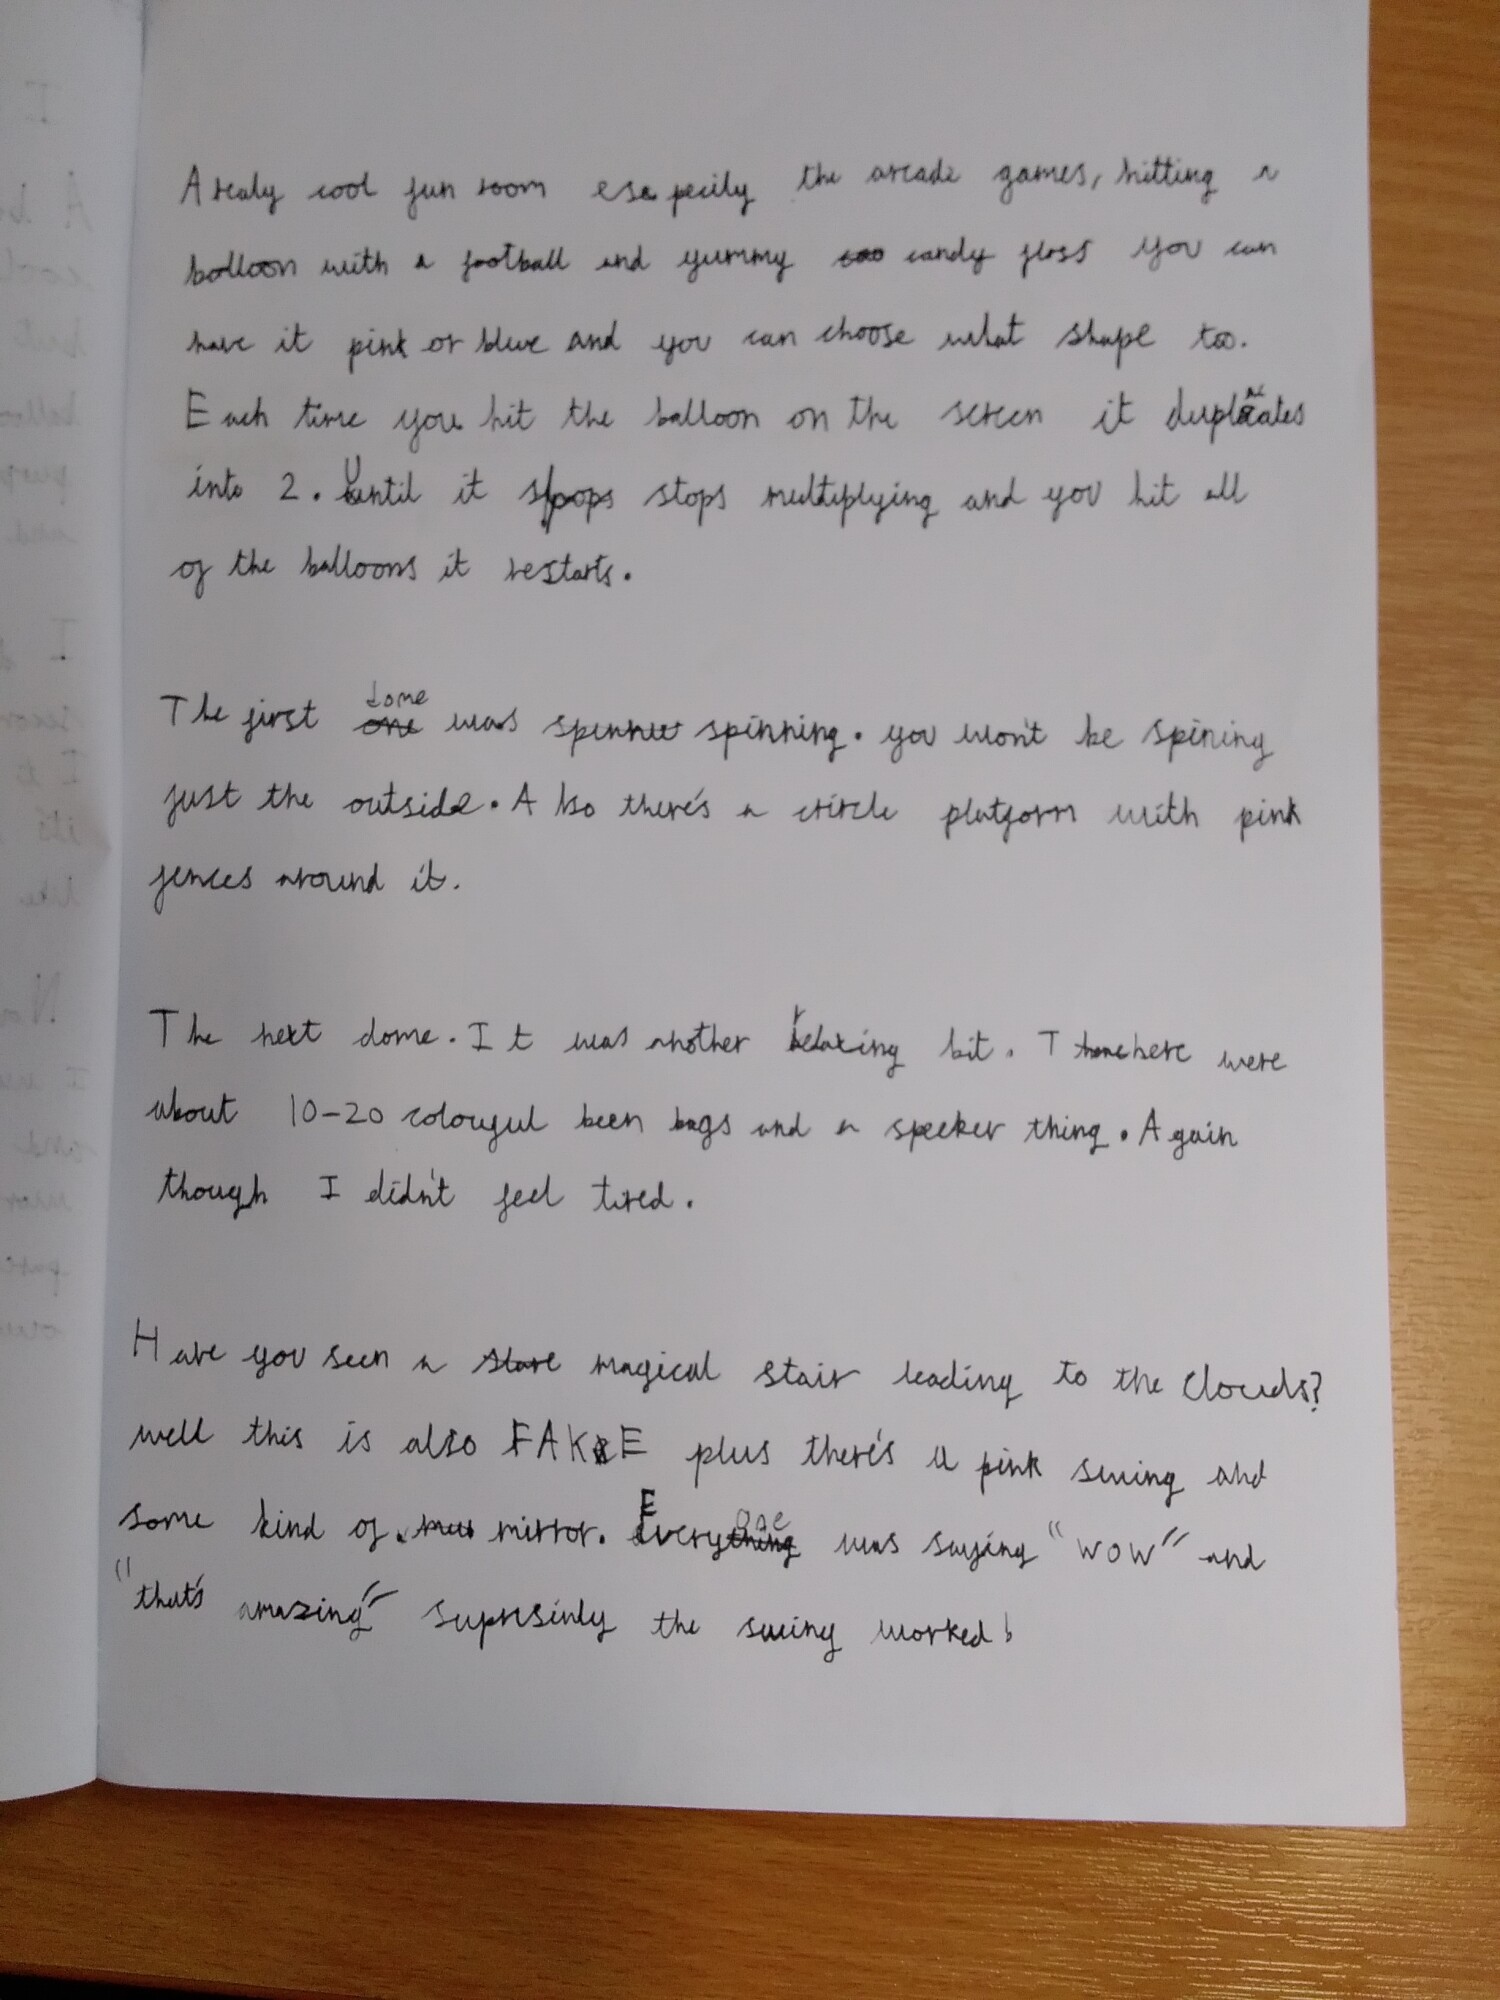 A realy cool fun room esepecily the arcade games, hitting a
balloon with a football and yummy candy floss you can
have it pink or blue and you can choose what shape too.
Each time you hit the balloon on the screen it duplicates
into 2. Until it stops multiplying and you hit all
of the balloons it restarts.
The first dome was spinning. you won't be spining
just the outside. Also there's a circle platform with pink
fences around it.
The next dome. It was another relaxing bit. There were
about 10-20 colourful been bags and a speeker thing. Again
though I didn't feel tired.
Have you seen a magical stair leading to the clouds?
well this is also FAKE plus there's a pink swing and
some kind of mirror. Everyone was saying "WOW" and
"that's amazing" suprisinly the swing worked!